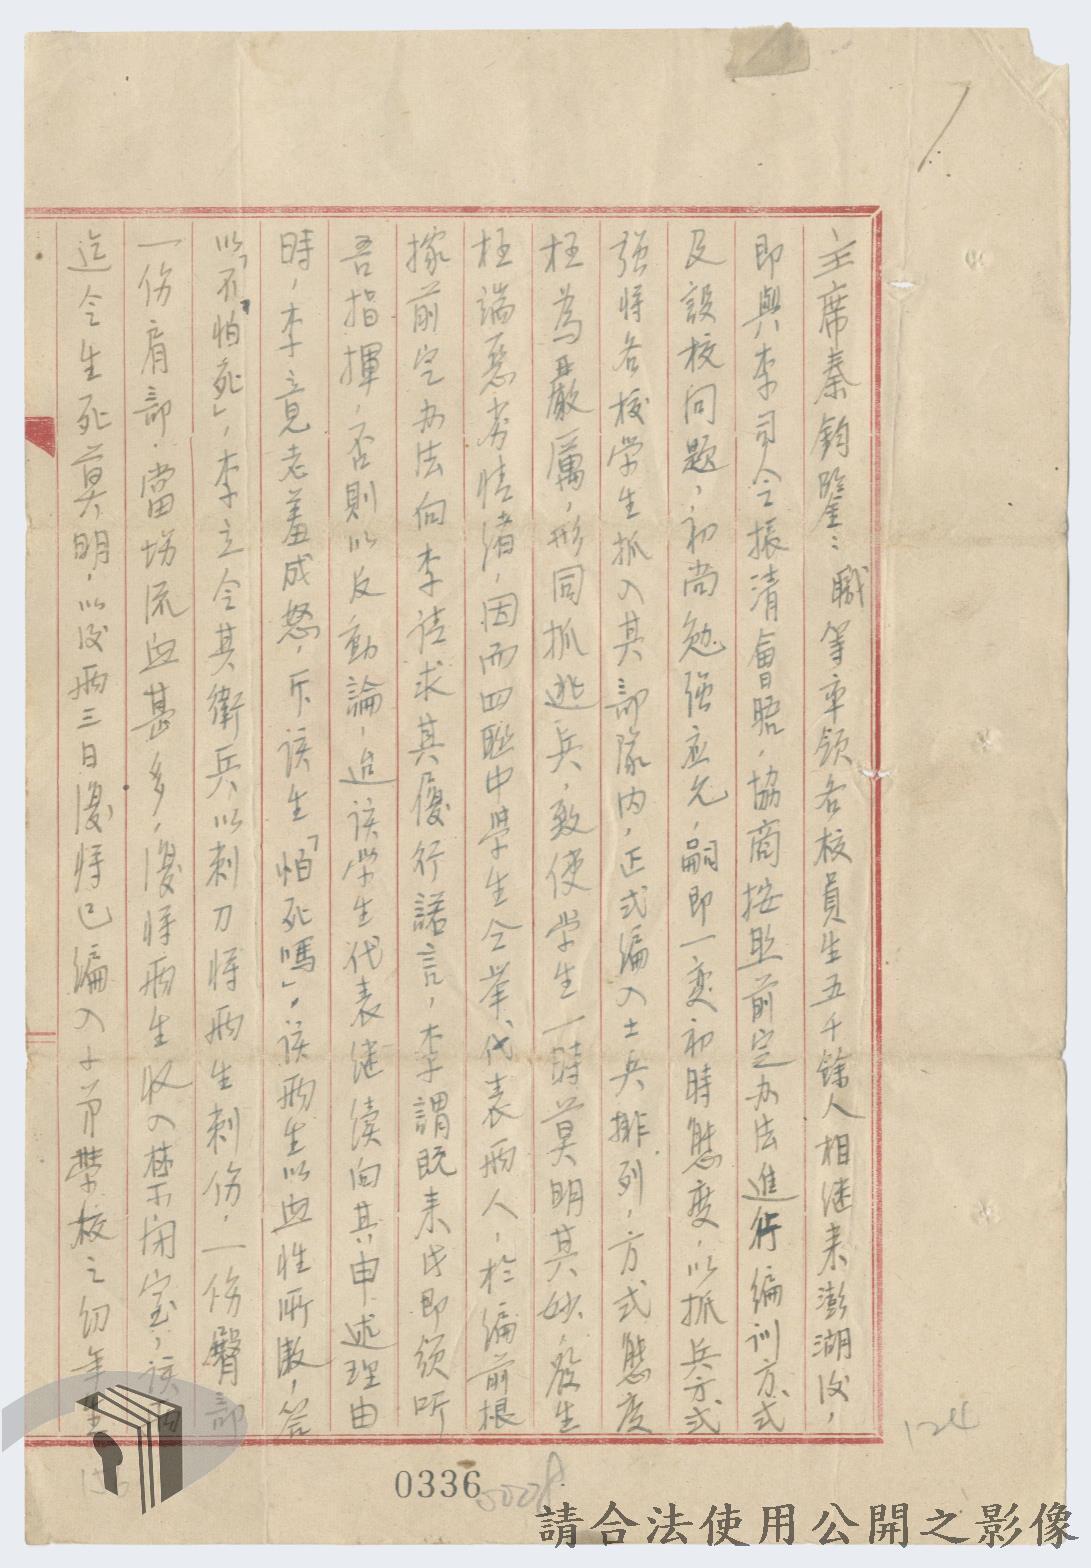 主席秦鈞鑒：職等率領各校員生五千餘人相继来澎湖後，
即與李司令振清會晤，協商按照前定办法進行編訓方式
及設校问題，初尚勉强应允，嗣即一变初時態度，以抓兵方式
强将各校学生抓入其部隊内，正式編入士兵排列，方式態度
枉為嚴厲，形同抓逃兵，致使学生一時莫明其妙，發生
枉端惡劣情绪，因而四联中學生仝举代表两人，於編前根
據前定办法向李请求其履行諾言，李謂既来此即须听
吾指揮，否則以反動論，迨该学生代表继续向其申述理由
時，李竟老羞成怒，斥该生「怕死嗎」，该两生以血性所激，答
以「不怕死」，李立令其衛兵以刺刀将两生刺伤，一伤臀部
一伤肩部，當場流血甚多，復将两生收入禁闭室，该两
迄今生死莫明，以後两三日復将已編入子弟學校之幼年生
0336
5008
124
請合法使用公開之影像